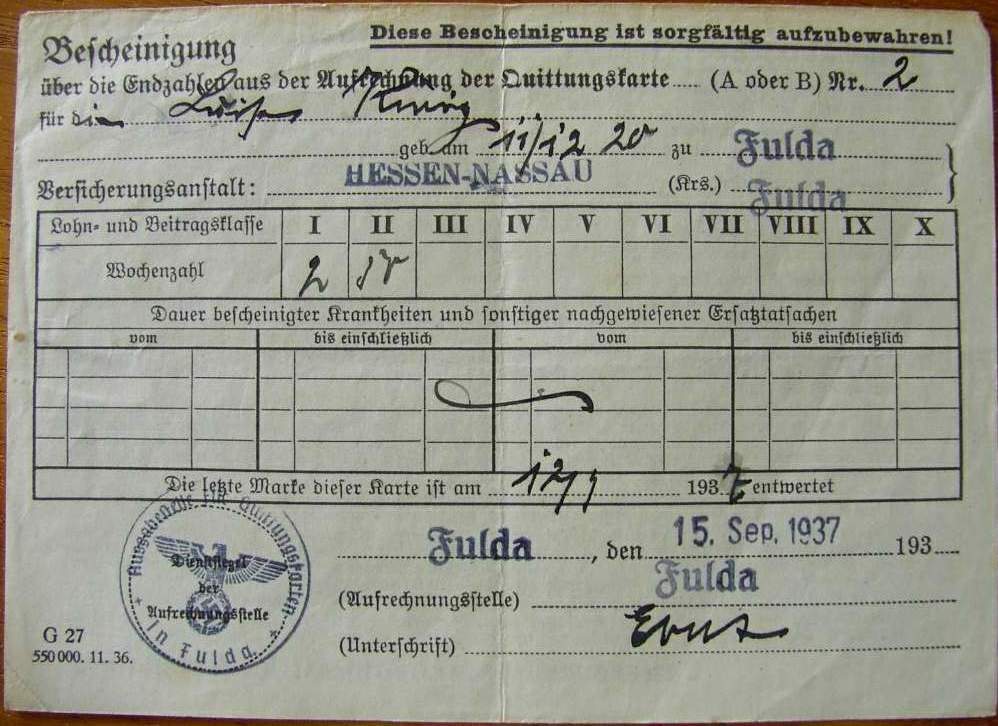 Diese Bescheinigung ist sorgfältig aufzubewahren!
Bescheinigung
über die Endzahlen aus der Aufrechnung der Quittungskarte (A oder B) Nr. 2
für die Luise
geb. am 11/12 20 zu Fulda
Versicherungsanstalt: HESSEN-NASSAU (Krs.) Fulda
Lohn- und Beitragsklasse I II III IV V VI VII VIII IX X
Wochenzahl 2
Dauer bescheinigter Krankheiten und sonstiger nachgewiesener Ersatztatsachen
vom bis einschließlich vom bis einschließlich
Die letzte Marke dieser Karte ist am 12/9 1937 entwertet
Fulda, den 15. Sep. 1937 193
(Aufrechnungsstelle) Fulda
(Unterschrift)
Ausgabestelle für Quittungskarten
Dienstsiegel
der
Aufrechnungsstelle
in Fulda
G 27
550 000. 11. 36.